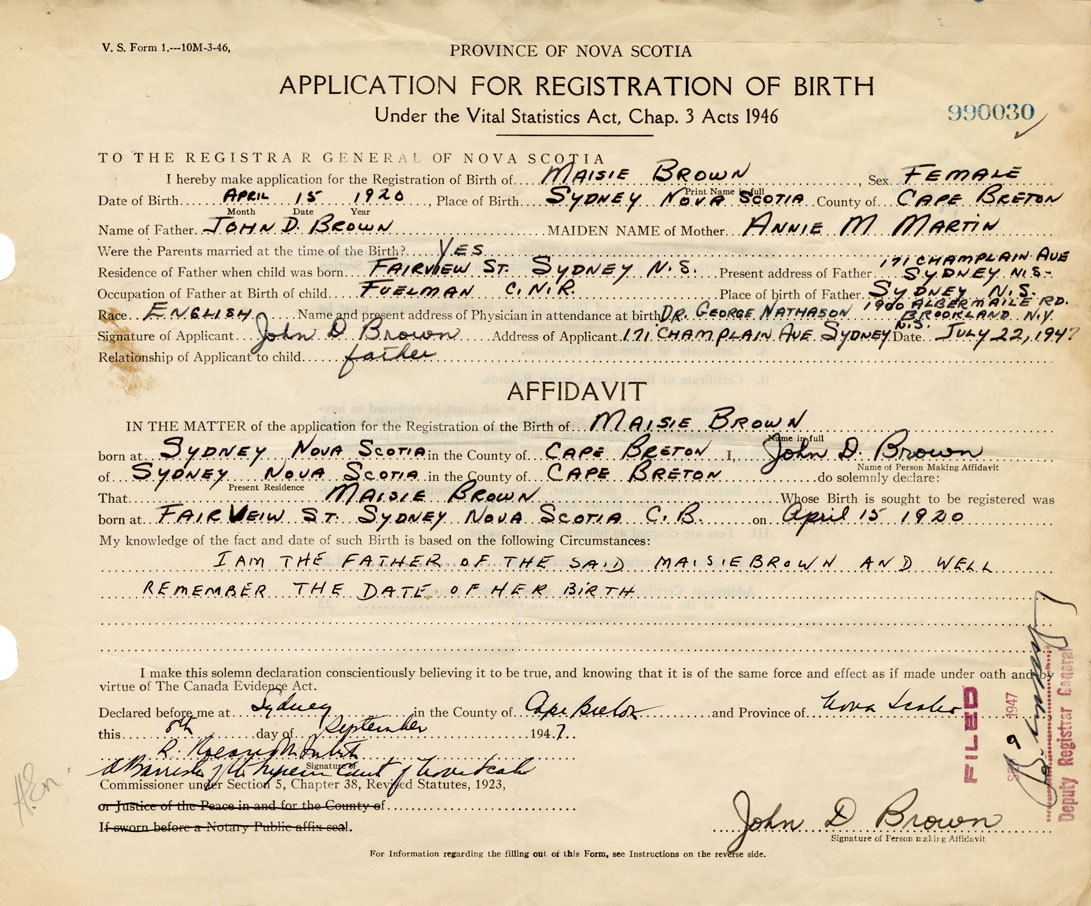 V. S. Form 1.---10M-3-46,
PROVINCE OF NOVA SCOTIA
APPLICATION FOR REGISTRATION OF BIRTH
Under the Vital Statistics Act, Chap. 3 Acts 1946
990030
TO THE REGISTRAR GENERAL OF NOVA SCOTIA
I hereby make application for the Registration of Birth of MAISIE BROWN, Sex FEMALE
Print Name in full
Date of Birth APRIL 15 1920, Place of Birth SYDNEY NOVA SCOTIA County of CAPE BRETON
Month Date Year
Name of Father JOHN D. BROWN MAIDEN NAME of Mother ANNIE M MARTIN
Were the Parents married at the time of the Birth? YES
171 CHAMPLAIN AVE
Residence of Father when child was born FAIRVIEW ST. SYDNEY N.S. Present address of Father SYDNEY N.S.
Occupation of Father at Birth of child FUELMAN C.N.R. Place of birth of Father SYDNEY N.S.
1900 ALBERMAILE RD.
Race ENGLISH Name and present address of Physician in attendance at birth DR. GEORGE NATHASON BROOKLAND N.Y.
Signature of Applicant John D Brown Address of Applicant 171 CHAMPLAIN AVE SYDNEY N.S. Date JULY 22, 1947
Relationship of Applicant to child father
AFFIDAVIT
IN THE MATTER of the application for the Registration of the Birth of MAISIE BROWN
Name in full
born at SYDNEY NOVA SCOTIA in the County of CAPE BRETON I, John D. Brown
Name of Person Making Affidavit
of SYDNEY NOVA SCOTIA in the County of CAPE BRETON do solemnly declare:
Present Residence
That MAISIE BROWN Whose Birth is sought to be registered was
born at FAIRVEIW ST. SYDNEY NOVA SCOTIA C.B. on April 15 1920
My knowledge of the fact and date of such Birth is based on the following Circumstances:
I AM THE FATHER OF THE SAID MAISIE BROWN AND WELL
REMEMBER THE DATE OF HER BIRTH
I make this solemn declaration conscientiously believing it to be true, and knowing that it is of the same force and effect as if made under oath and by
virtue of The Canada Evidence Act.
Declared before me at Sydney in the County of Cape Breton and Province of Nova Scotia
this 8th day of September 1947.
Signature of
A Barrister of the Supreme Court of Nova Scotia
Commissioner under Section 5, Chapter 38, Revised Statutes, 1923,
or Justice of the Peace in and for the County of
If sworn before a Notary Public affix seal.
John D Brown
Signature of Person making Affidavit
For Information regarding the filling out of this Form, see Instructions on the reverse side.
FILED
SEP 9 1947
Deputy Registrar General